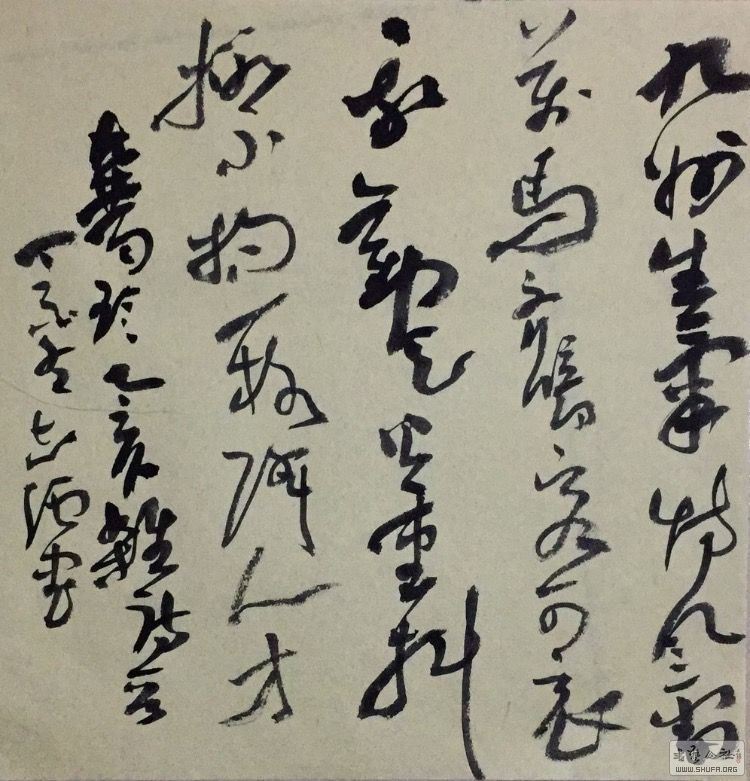 九州生氣恃風雷
萬馬齊喑究可哀
我勸天公重抖
擻不拘一格降人才
龔自珍己亥雜詩
丁酉書
WWW.SHUFA.ORG